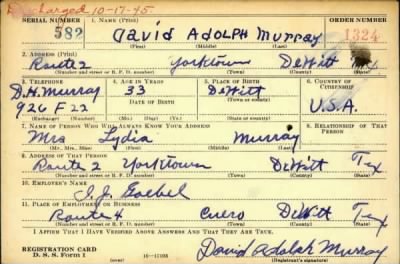 Discharged 10-17-45
SERIAL NUMBER 1. NAME (Print) ORDER NUMBER
582 David Adolph Murray 1324
(First) (Middle) (Last)
2. ADDRESS (Print)
Route 2 Yorktown DeWitt
(Number and street or R. F. D. number) (Town) (County) (State)
3. TELEPHONE 4. AGE IN YEARS 5. PLACE OF BIRTH 6. COUNTRY OF CITIZENSHIP
D.H. Murray 33 DeWitt
DATE OF BIRTH U.S.A.
926 F 22
7. NAME OF PERSON WHO WILL ALWAYS KNOW YOUR ADDRESS 8. RELATIONSHIP OF THAT PERSON
Mrs Lydia Murray
(Mr., Mrs., Miss) (First) (Middle) (Last)
9. ADDRESS OF THAT PERSON
Route 2 Yorktown DeWitt Tex
(Number and street or R. F. D. number) (Town) (County) (State)
10. EMPLOYER'S NAME
Goebel
11. PLACE OF EMPLOYMENT OR BUSINESS
Route 4 Cuero DeWitt Tex
(Number and street or R. F. D. number) (Town) (County) (State)
I AFFIRM THAT I HAVE VERIFIED ABOVE ANSWERS AND THAT THEY ARE TRUE.
REGISTRATION CARD David Adolph Murray
D. S. S. Form 1 (Registrant's signature)